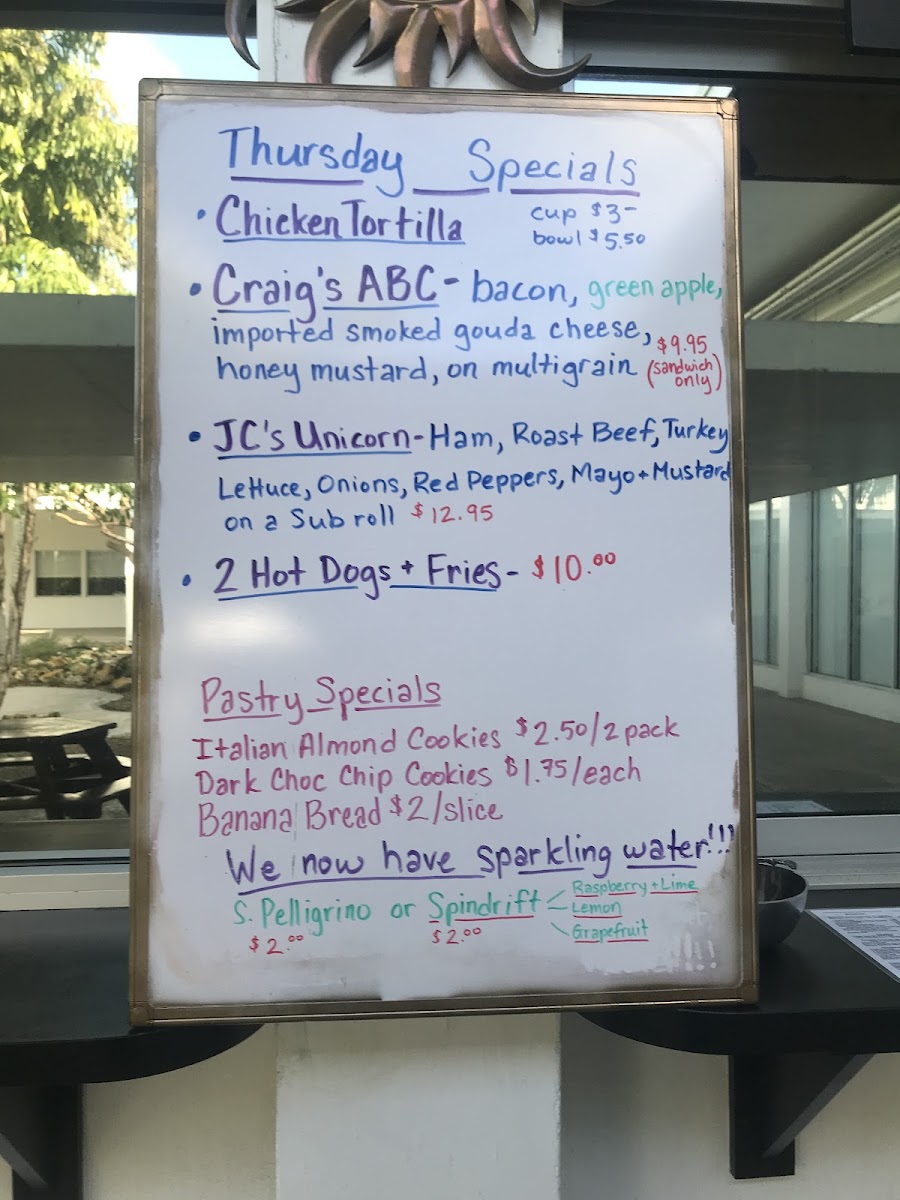 Thursday Specials
• Chicken Tortilla cup $3-
bowl $5.50
• Craig's ABC - bacon, green apple,
imported smoked gouda cheese, $9.95
honey mustard, on multigrain (sandwich only)
• JC's Unicorn - Ham, Roast Beef, Turkey
Lettuce, Onions, Red Peppers, Mayo + Mustard
on a Sub roll $12.95
• 2 Hot Dogs + Fries - $10.00
Pastry Specials
Italian Almond Cookies $2.50/2 pack
Dark Choc Chip Cookies $1.75/each
Banana Bread $2/slice
We now have sparkling water!!!
S. Pelligrino or Spindrift
$2.00 $2.00
Raspberry + Lime
Lemon
Grapefruit